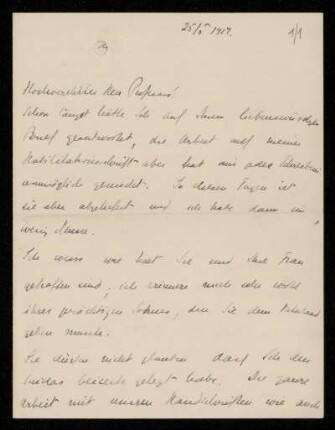 25/5 1917.
1/1
Hochverehrter Herr Professor!
Schon längst hätte ich auf Ihren liebenswürdigen
Brief geantwortet, die Arbeit auf meiner
Habilitationsschrift aber hat mir alles Schreiben
unmöglich gemacht. In diesen Tagen ist
sie aber abgeliefert und ich habe dann ein
wenig Musse.
Ich weiss wie hart Sie und Ihre Frau
getroffen sind; ich erinnere mich sehr wohl
ihres prächtigen Sohnes, den Sie dem Vaterland
geben musste.
Sie dürfen nicht glauben dass ich den
Suidas beiseite gelegt habe. Die ganze
Arbeit mit unseren Handschriften wie auch